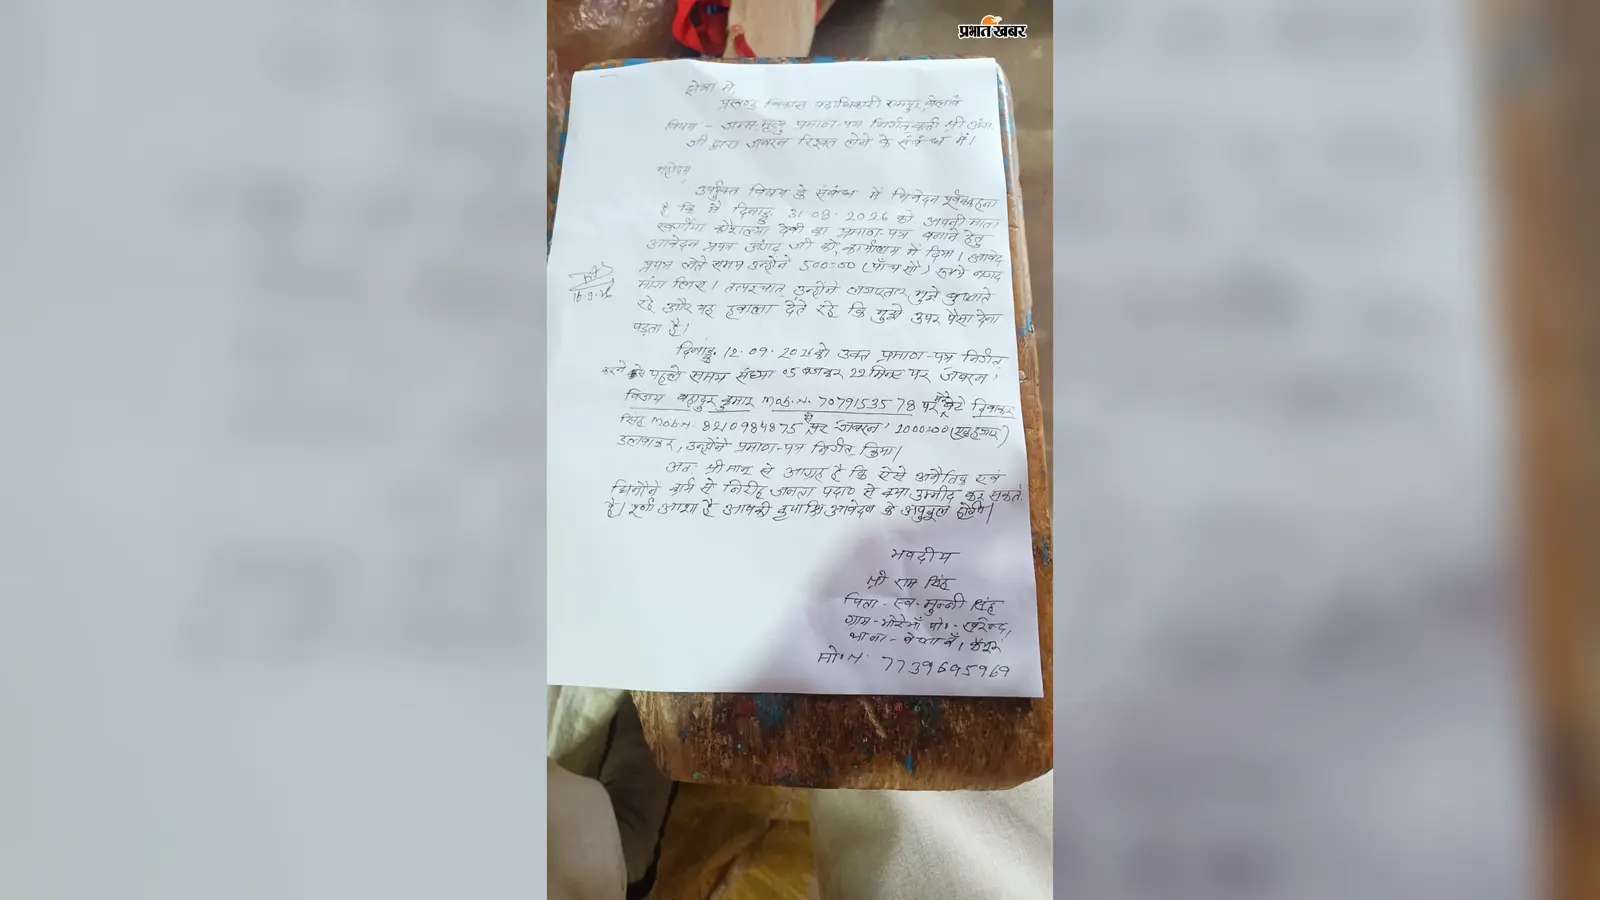 प्रभात खबर
सेवा में
प्रखण्ड विकास पदाधिकारी रामपुर, बेलांव
विषय - जन्म-मृत्यु प्रमाण-पत्र निर्गतकर्ता श्री अंगद
जी द्वारा जबरन रिश्वत लेने के संबंध में।
महोदय,
उपर्युक्त विषय के संबंध में निवेदन पूर्वक कहना
है कि मैं दिनाङ्क 31-08-2026 को अपनी माता
स्वर्गीया कौशल्या देवी का प्रमाण-पत्र बनाने हेतु
आवेदन प्रपत्र अंगद जी को, कार्यालय में दिया। आवेद
प्रपत्र लेते समय उन्होंने 500=00 (पाँच सौ) रूपये नगद
मांग लिए। तत्पश्चात् उन्होंने लगातार मुझे बुलाते
रहे और यह हवाला देते रहे कि मुझे उपर पैसा देना
पड़ता है।
16-9-26
दिनाङ्क 12-09-2026 को उक्त प्रमाण-पत्र निर्गत
करने से पहले समय संध्या 05 बजकर 22 मिनट पर 'जबरन'
विजय बहादुर कुमार Mob.N. 7079153578 पर मेरे बेटे दिवाकर
सिंह Mob N. 8210984875 से पर 'जबरन' 1000=00 (एक हजार)
डलवाकर, उन्होंने प्रमाण-पत्र निर्गत किया।
अतः श्रीमान् से आग्रह है कि ऐसे अनैतिक एवं
घिनौने कार्य से निरीह जनता पदा० से क्या उम्मीद कर सकते
है। पूर्ण आशा है आपकी कृपा आवेदन के अनुकूल होगी।
भवदीय
श्री राम सिंह
पिता - स्व. मुन्नी सिंह
ग्राम - पो. - खरेन्दा,
थाना - बेलांव, कैमूर
मो.N. 7739695969